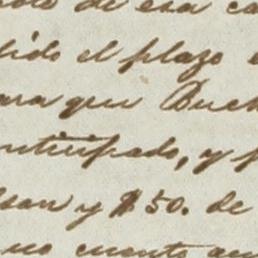 de esa ca
dido el plazo
ara que Buch
nticipado, y p
san y $50. de
no cuento au